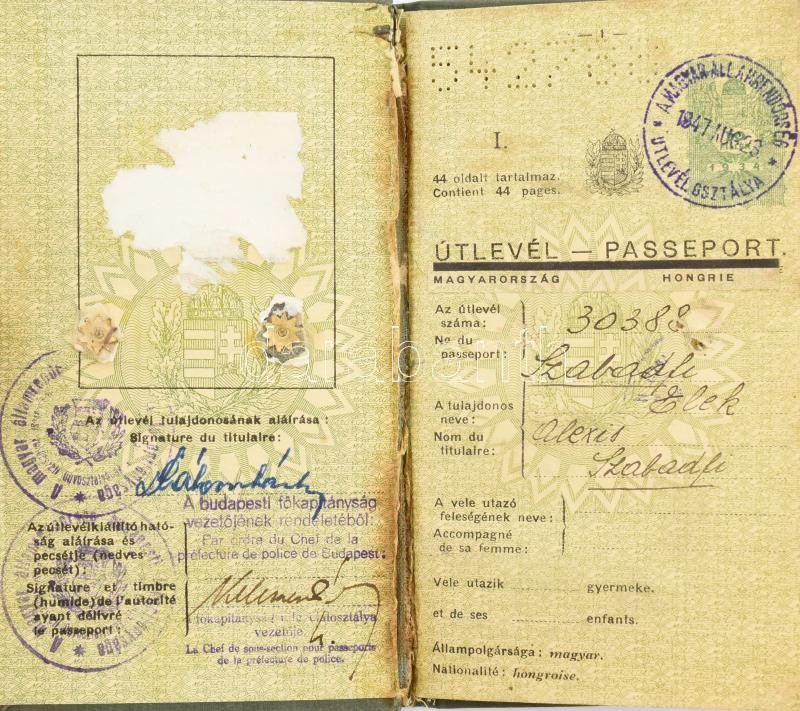 Az útlevél tulajdonosának aláírása :
Signature du titulaire :
A budapesti főkapitányság
vezetőjének rendeletéből:
Par ordre du Chef de la
préfecture de police de Budapest:
Az útlevélkiállító ható-
ság aláírása és
pecsétje (nedves
pecsét) :
Signature et timbre
(humide) de l'autorité
ayant délivré
le passeport :
A főkapitányság útlevélosztálya
vezetője.
Le Chef de sous-section pour passeports
de la préfecture de police.
A magyar államrendőr
— 1 —
A MAGYAR ÁLLAMRENDŐRSÉG
1947 AUG 23
ÚTLEVÉL OSZTÁLYA
I.
44 oldalt tartalmaz.
Contient 44 pages.
ÚTLEVÉL — PASSEPORT.
MAGYARORSZÁG HONGRIE
Az útlevél
száma :
No du
passeport :
30388
A tulajdonos
neve :
Nom du
titulaire :
Szabadfi
Elek
Alexis
Szabadfi
A vele utazó
feleségének neve :
Accompagné
de sa femme :
Vele utazik gyermeke.
et de ses enfants.
Állampolgársága : magyar.
Nationalité : hongroise.
darabanth